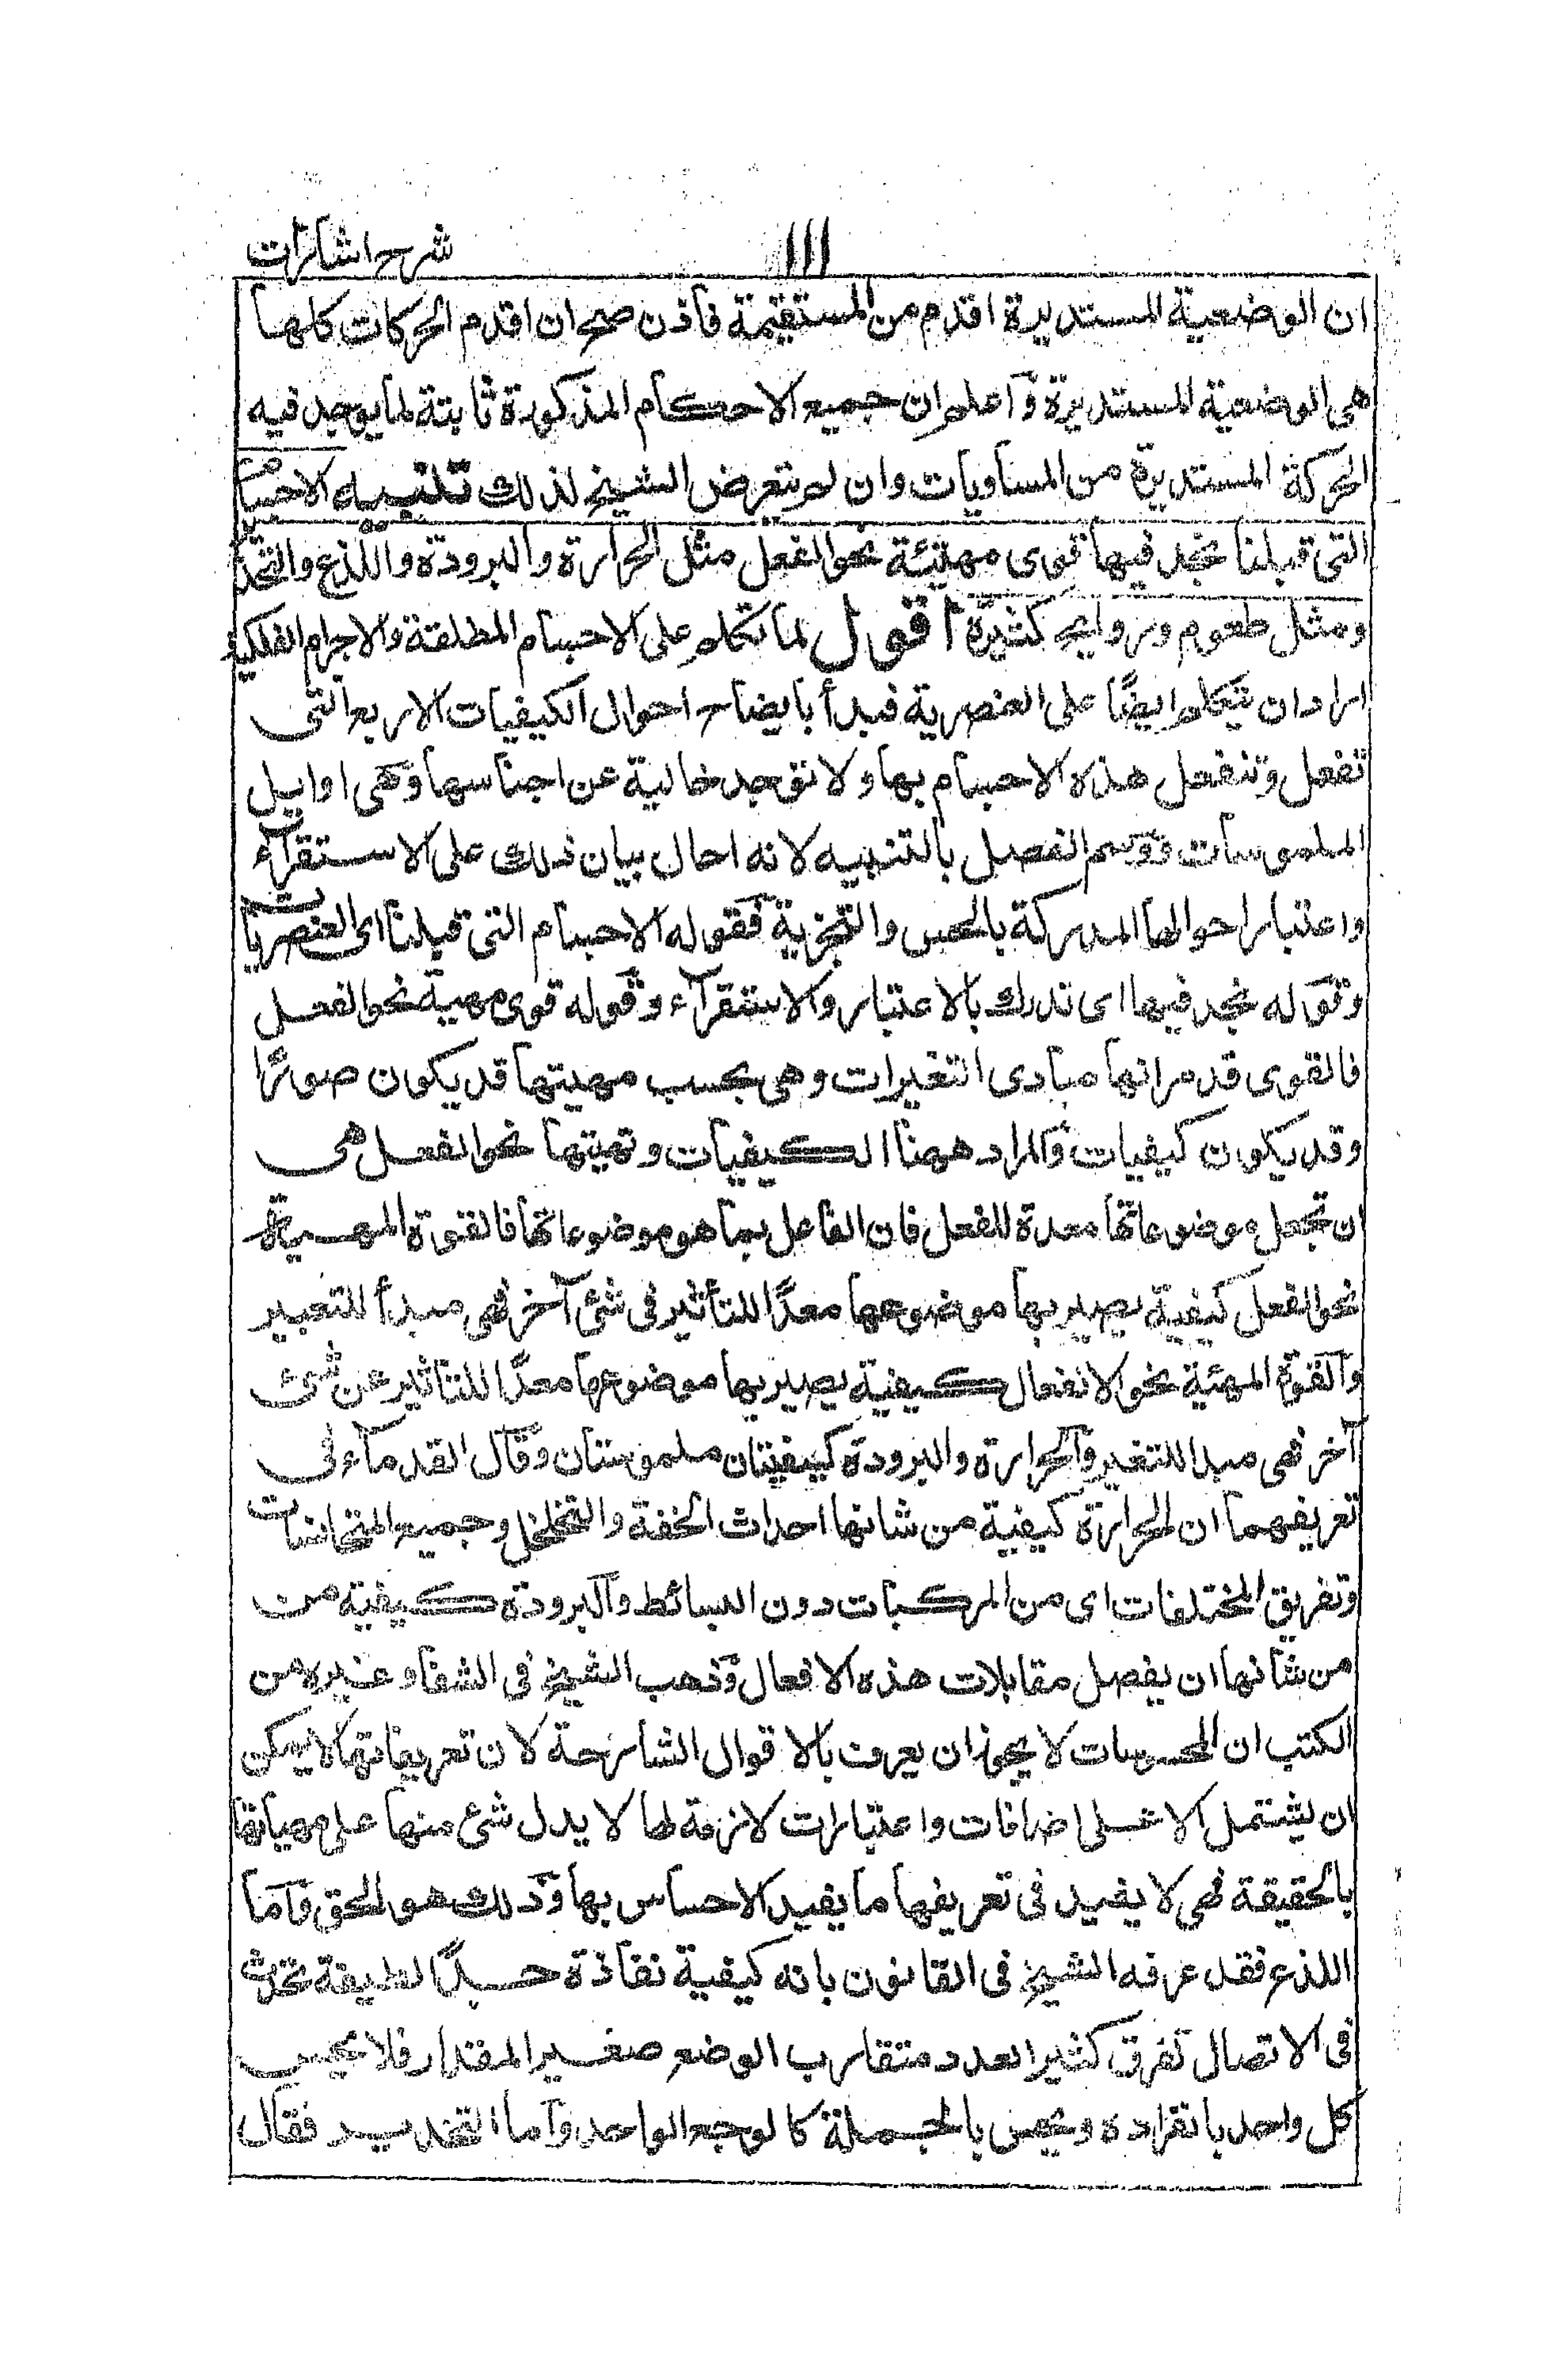 شرح اشارات
١١١
ان الوضعية المستديرة اقدم من المستقيمة فأذن صح ان اقدم الحركات كلها
هى الوضعية المستديرة وآعلم ان جميع الاحكام المذكورة ثابتة لما يوجد فيه
الحركة المستديرة من السماويات وان لم يتعرض الشيخ لذلك تنبيه الاجسام
التى قبلنا نجد فيها قوى مهيئة نحو الفعل مثل الحرارة والبرودة واللذع والتخدير
ومثل طعوم وروايح كثيرة اقول لما تكلم على الاجسام المطلقة والاجرام الفلكية
اراد ان يتكلم ايضًا على العنصرية فبدأ بايضاح احوال الكيفيات الاربع التى
تفعل وتنفعل هذه الاجسام بها ولا توجد خالية عن اجناسها وهى اوايل
الملموسات ووسم الفصل بالتنبيه لانه احال بيان ذلك على الاستقرآء
واعتبار احوالها المدركة بالحس والتجربة فقوله الاجسام التى قبلنا اى العنصريات
وقوله نجد فيها اى ندرك بالاعتبار والاستقرآء وقوله قوى مهية نحو الفعل
فالقوى قد مر انها مبادى التغيرات وهى بحسب مهيتها قد يكون صورًا
وقد يكون كيفيات والمراد ههنا الكيفيات وتهيتها نحو الفعل هى
ان تجعل موضوعاتها معدة للفعل فان الفاعل بها هو موضوعاتها فالقوة المهيأة
نحو الفعل كيفية يصير بها موضوعها معدًا للتأثير فى شئ آخر فهى مبدأ للتغيير
وآلقوة المهئية نحو الانفعال كيفية يصير بها موضوعها معدًا للتاثير عن شئ
آخر فهى مبدا للتغير وآلحرارة والبرودة كيفيتان ملموستان وقال القدمآء فى
تعريفهما ان الحرارة كيفية من شانها احداث الخفة والتخلخل وجميع المتجانسات
وتفريق المختلفات اى من المركبات دون البسائط وآلبرودة كيفية من
من شأنها ان يفصل مقابلات هذه الافعال وذهب الشيخ فى الشفا وغيره من
الكتب ان المحسوسات لا يجوز ان يعرف بالاقوال الشارحة لان تعريفاتها لا يمكن
ان يشتمل الا على اضافات واعتبارات لازمة لها لا يدل شئ منها على مهياتها
بالحقيقة فهى لا يفيد فى تعريفها ما يفيد الاحساس بها وذلك هو الحق فآما
اللذع فقد عرفه الشيخ فى القانون بانه كيفية نفاذة جدًا لطيفة تحدث
فى الاتصال تفرق كثير العدد متقارب الوضع صغير المقدار فلا يحس
كل واحد بانفراده ويحس بالجملة كالوجع الواحد وآما التخدير فقال